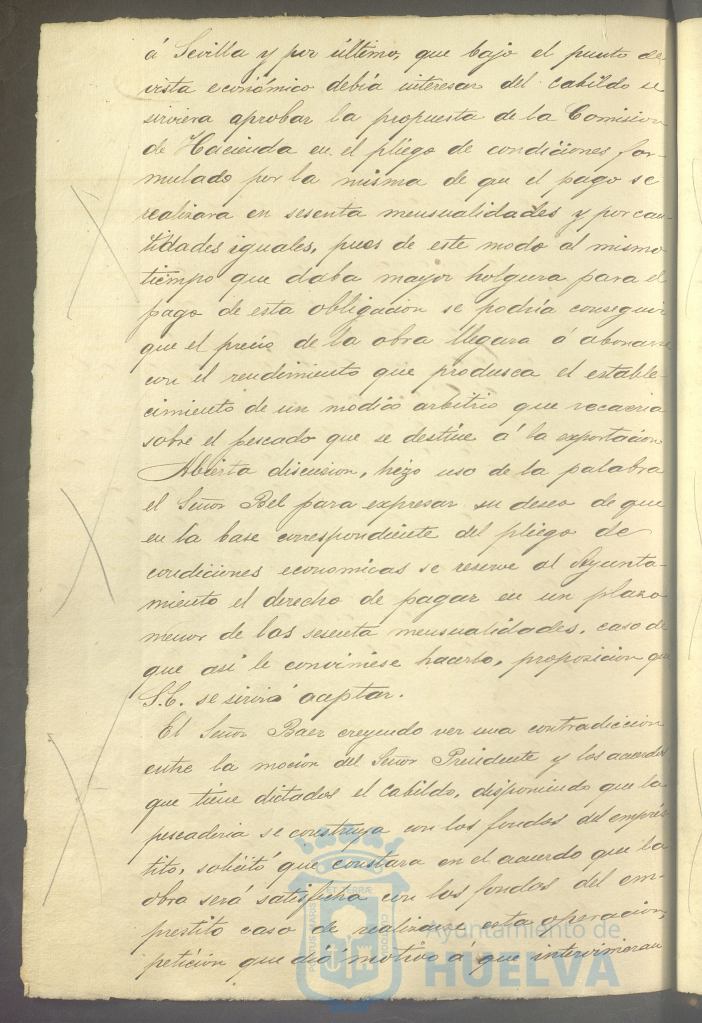 á Sevilla y por último, que bajo el punto de
vista económico debía interesar del cabildo se
sirviera aprobar la propuesta de la Comision
de Hacienda en el pliego de condiciones for-
mulado por la misma de que el pago se
realizara en sesenta mensualidades y por can-
tidades iguales, pues de este modo al mismo
tiempo que daba mayor holgura para el
pago de esta obligacion se podría conseguir
que el precio de la obra llegara á abonarse
con el rendimiento que produsca el estable-
cimiento de un modico arbitrio que recaeria
sobre el pescado que se destine á la exportacion
Abierta discusion, hizo uso de la palabra
el Señor Bel para expresar su deseo de que
en la base correspondiente del pliego de
condiciones economicas se reserve al Ayunta-
miento el derecho de pagar en un plazo
menor de las sesenta mensualidades, caso de
que asi le conviniese hacerlo, proposicion que
S.E. se sirvió aceptar.
El Señor Baez creyendo ver una contradiccion
entre la mocion del Señor Presidente y los acuerdos
que tiene dictados el cabildo, disponiendo que la
pescaderia se construya con los fondos del emprés-
tito, solicitó que constara en el acuerdo que la
obra será satisfecha con los fondos del em-
prestito caso de realizarse esta operacion,
peticion que dió motivo á que intervinieran
Ayuntamiento de
HUELVA